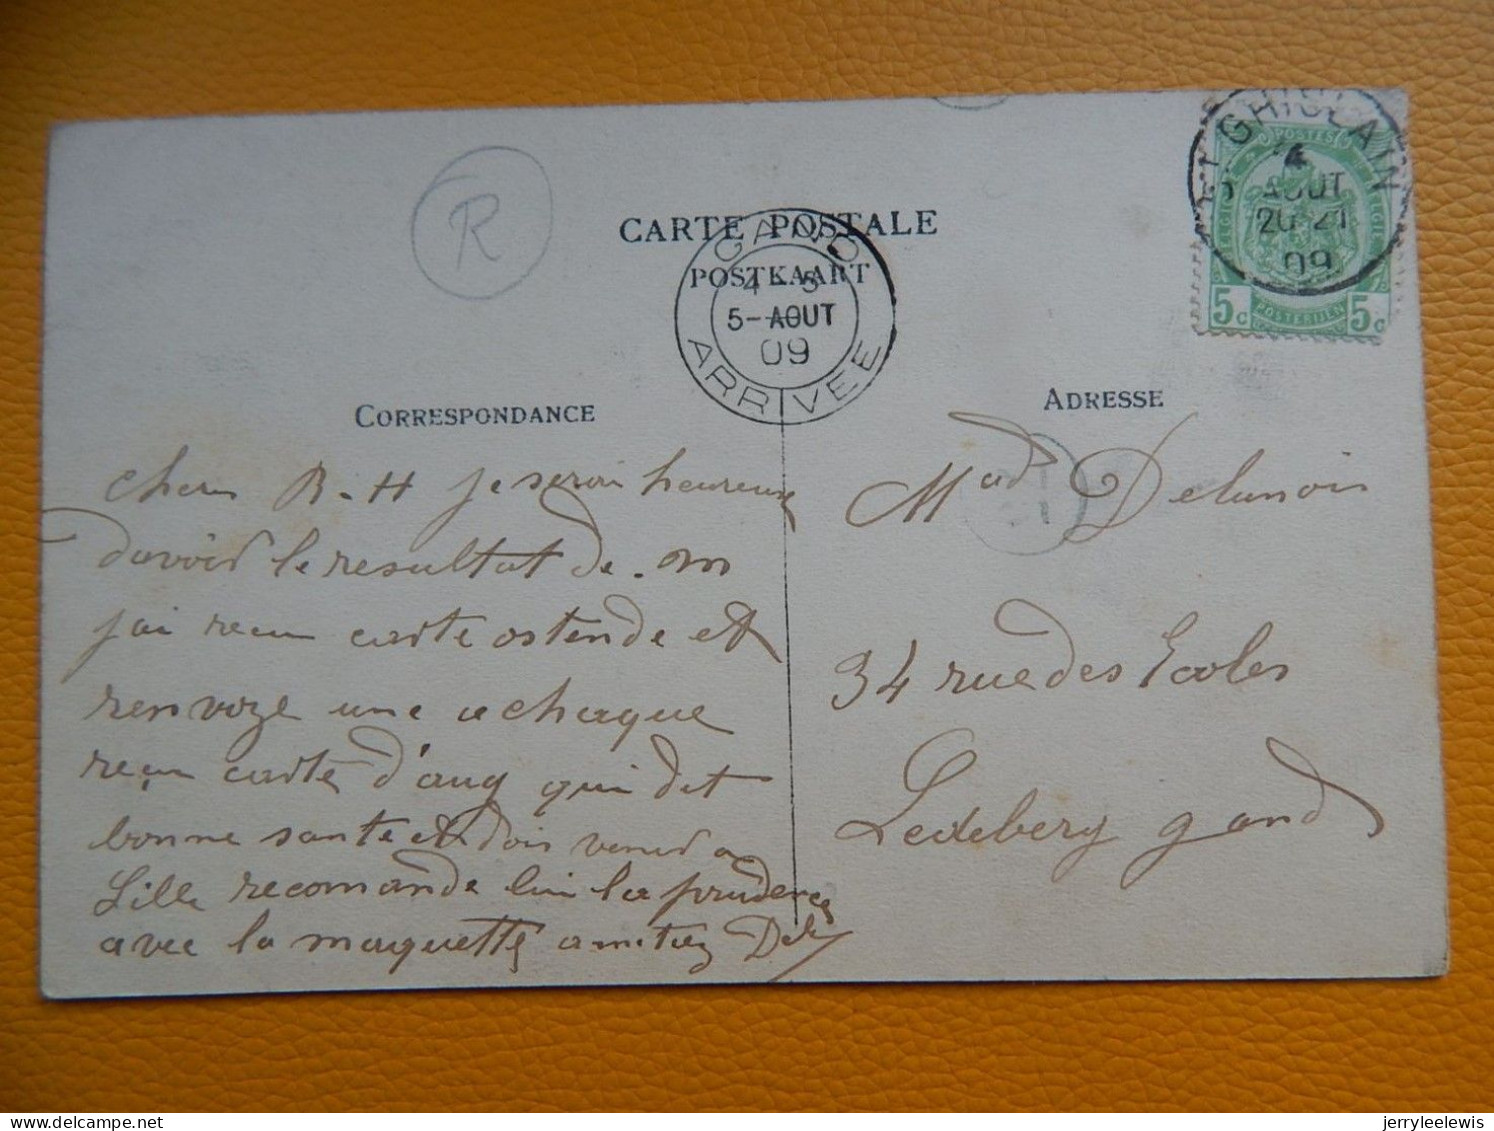 CARTE POSTALE
POSTKAART
GAND
4-5
5-AOUT
09
ARRIVEE
ST GHISLAIN
4
AOUT
20-21
09
POSTES
5c POSTERIJEN 5c
R
CORRESPONDANCE
ADRESSE
Chers R-H je serai heureux
davoir le resultat de m
j'ai recu carte ostende et
renvoze une a chaque
recu carte d'aug qui dit
bonne sante et dois venir a
Lille recomande lui la prudence
avec la maquette amitiez Del
Mad Delunois
34 rue des Ecoles
Ledeberg gand
jerryleelewis